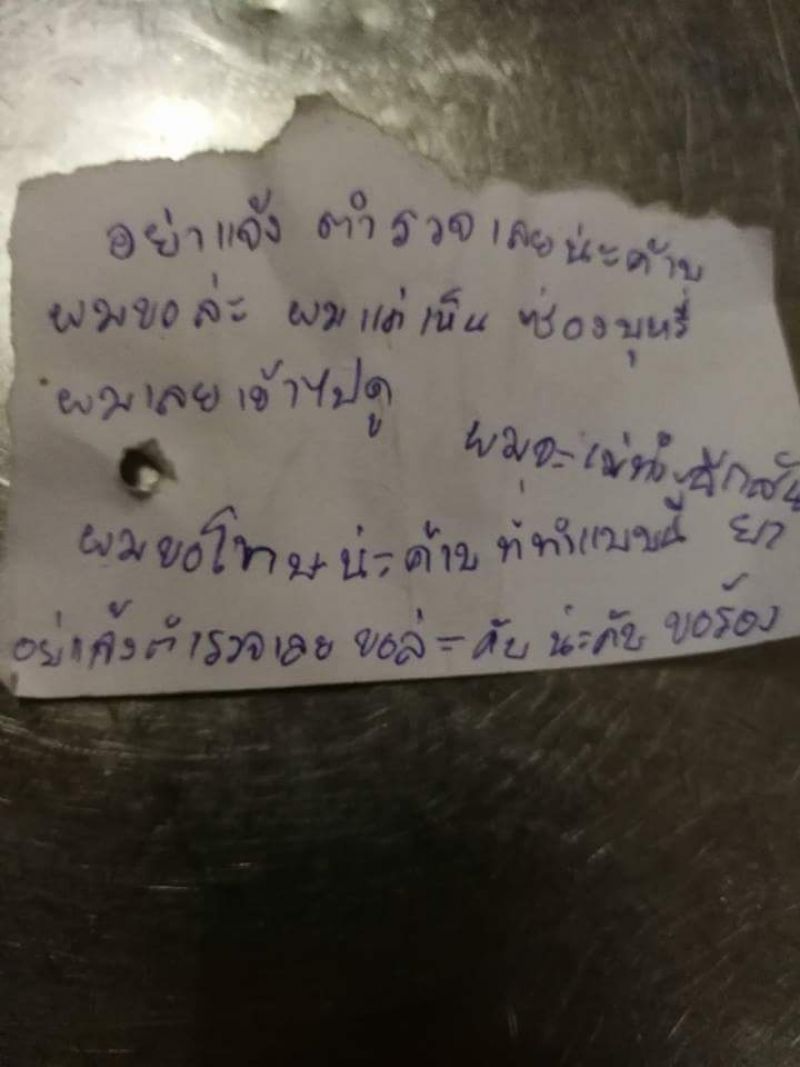 อย่าแจ้ง ตำรวจเลยน่ะค้าบ
ผมขอล่ะ ผมแค่เห็น ซ่องบุหรี่
ผมเลยเข้าไปดู
ผมจะไม่ทำ
ผมขอโทษน่ะค้าบ ที่ทำแบบนี้
อย่าแจ้งตำรวจเลย ขอล่ะ คับ น่ะคับ ขอร้อง